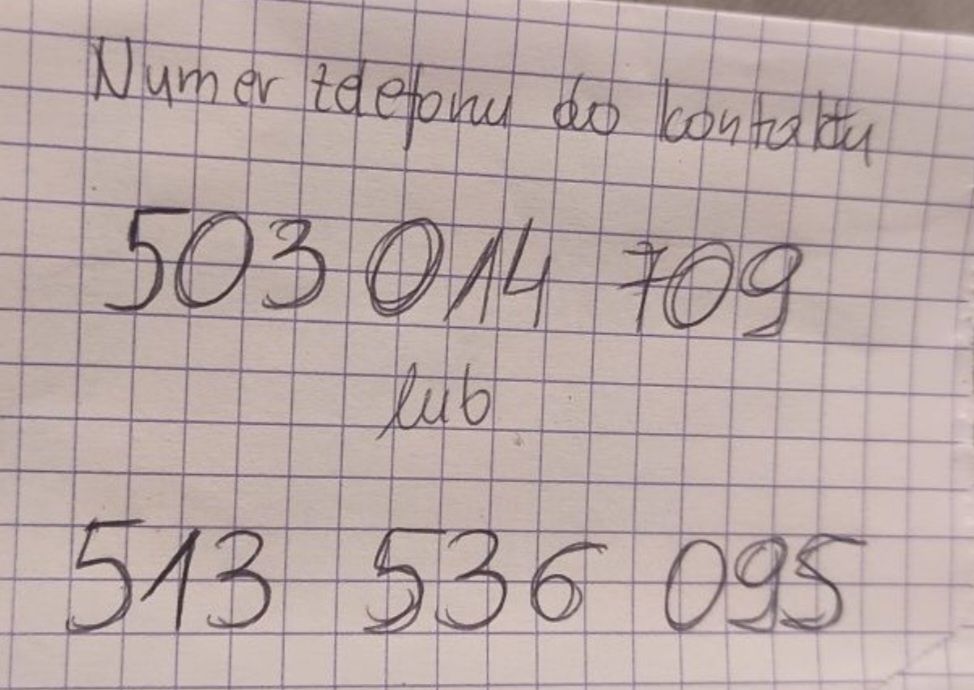 Numer telefonu do kontaktu
503 014 709
lub
513 536 095